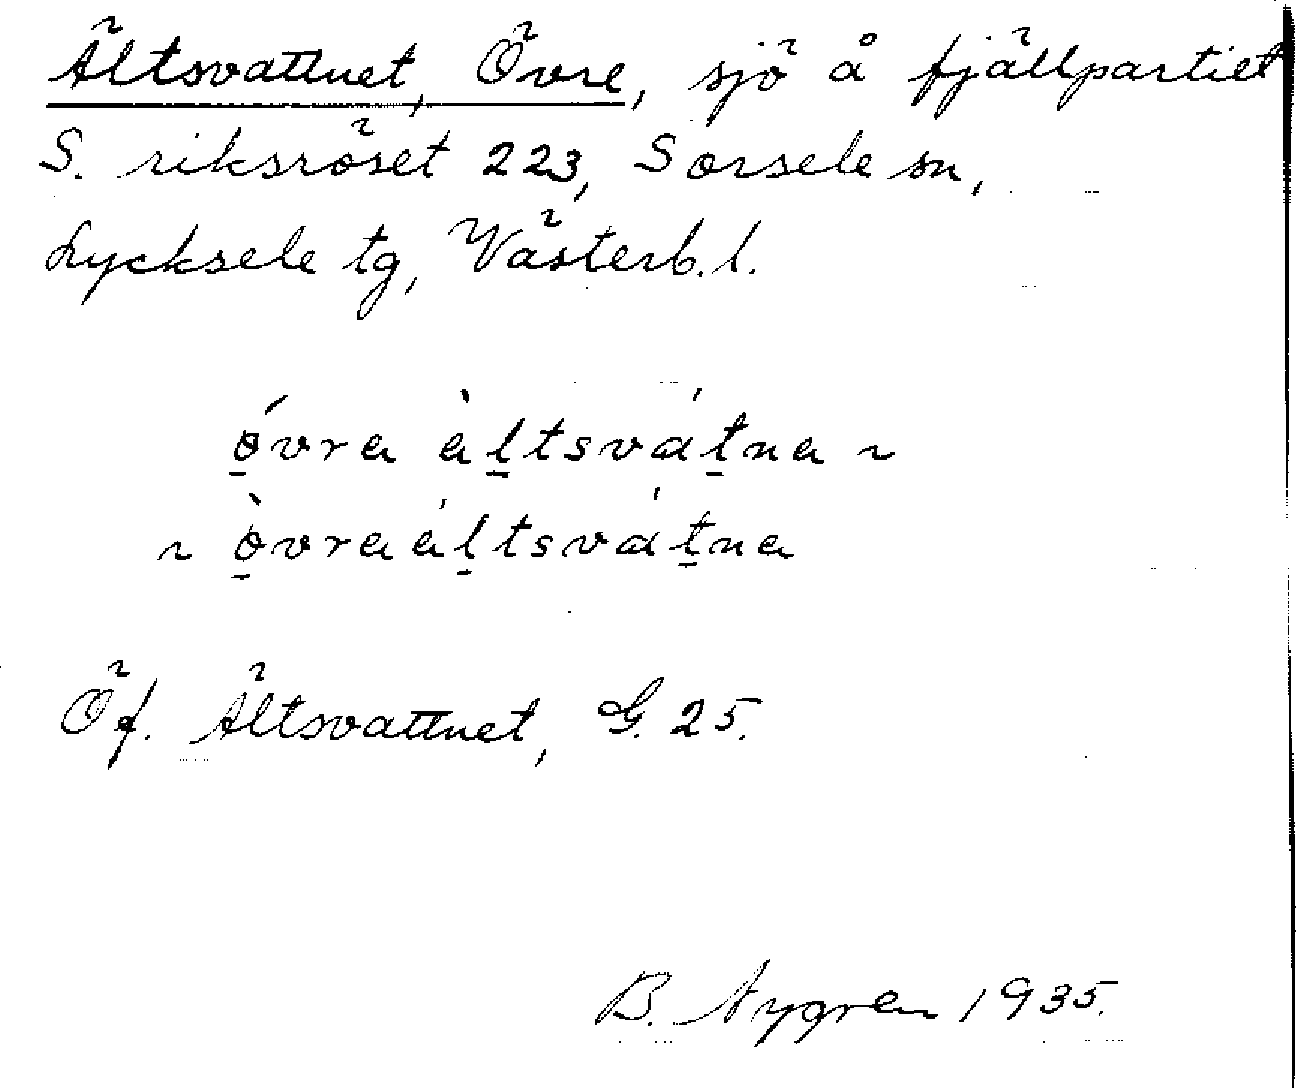 Ältsvattnet, Övre, sjö å fjällpartiet
S. riksröset 223, Sorsele sn,
Lycksele tg, Västerb. l.
ó̱vra àḻtsváṯna ~
~ ò̱vraáḻtsváṯna
Öf. Ältsvattnet, G. 25.
B. Nygren 1935.